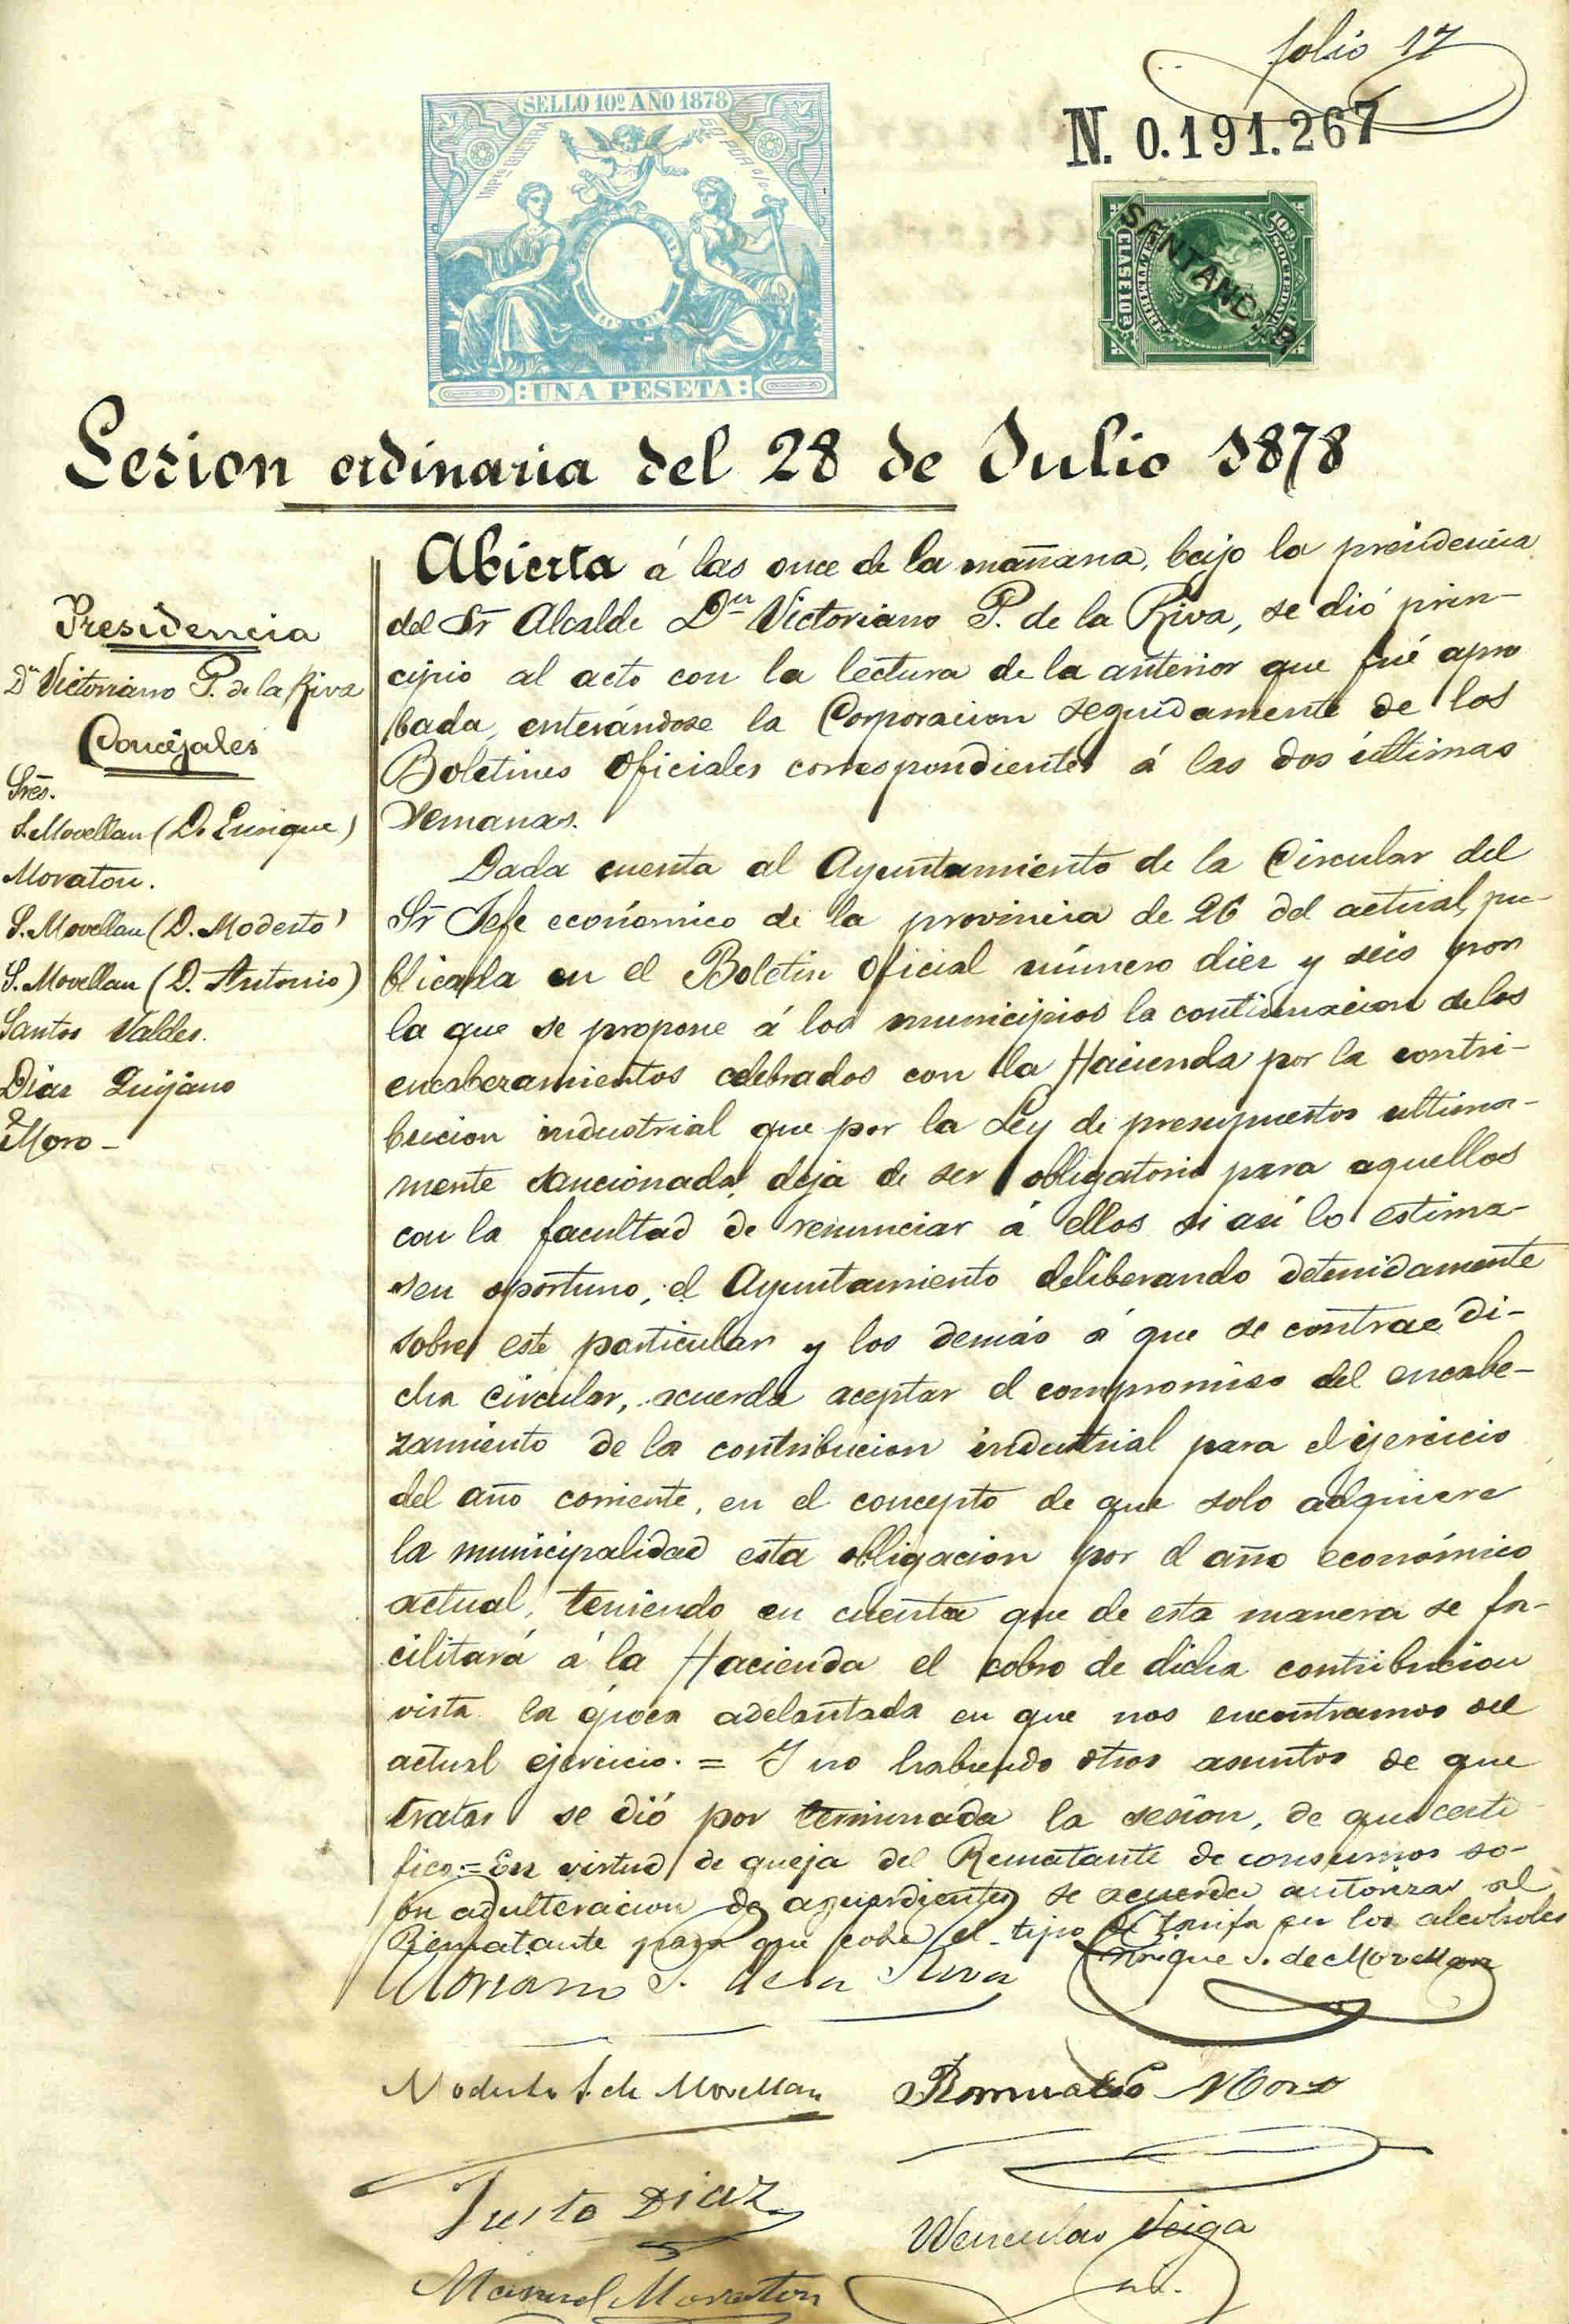 folio 17
SELLO 10º AÑO 1878
N. 0.191.267
SANTANDER
UNA PESETA
Sesion ordinaria del 28 de Julio 1878
Presidencia
Dn Victoriano P. de la Riva
Concejales
Sres.
S. Movellan (D. Enrique)
Moraton.
S. Movellan (D. Modesto)
S. Movellan (D. Antonio)
Santos Valdes.
Diaz Quijano
Moro -
Abierta á las once de la mañana, bajo la presidencia
del Sr Alcalde Dn Victoriano P. de la Riva, se dió prin-
cipio al acto con la lectura de la anterior que fué apro
bada, enterándose la Corporacion seguidamente de los
Boletines Oficiales correspondientes á las dos últimas
semanas.
Dada cuenta al Ayuntamiento de la Circular del
Sr Jefe económico de la provincia de 26 del actual, pu-
blicada en el Boletin Oficial número diez y seis por
la que se propone á los municipios la continuacion de los
encabezamientos celebrados con la Hacienda por la contri-
bucion industrial que por la Ley de presupuestos ultima-
mente sancionada, deja de ser obligatorio para aquellos
con la facultad de renunciar á ellos si asi lo estima-
sen oportuno, el Ayuntamiento deliberando detenidamente
sobre este particular y los demás á que se contrae di-
cha circular, acuerda aceptar el compromiso del encabe-
zamiento de la contribucion industrial para el ejercicio
del año corriente, en el concepto de que solo adquiere
la municipalidad esta obligacion por el año económico
actual, teniendo en cuenta que de esta manera se fa-
cilitará á la Hacienda el cobro de dicha contribucion
vista la época adelantada en que nos encontramos del
actual ejercicio. = Y no habiendo otros asuntos de que
tratar se dió por terminada la sesion, de que certi-
fico. = En virtud de queja del Rematante de consumos so-
bre adulteracion de aguardientes se acuerda autorizar al
Rematante para que cobre el tipo de tarifa en los alcoholes
Victoriano P. de la Riva
Enrique S. de Movellan
Modesto S. de Movellan
Romualdo Moro
Justo Diaz
Wenceslao Veiga
Manuel Moraton